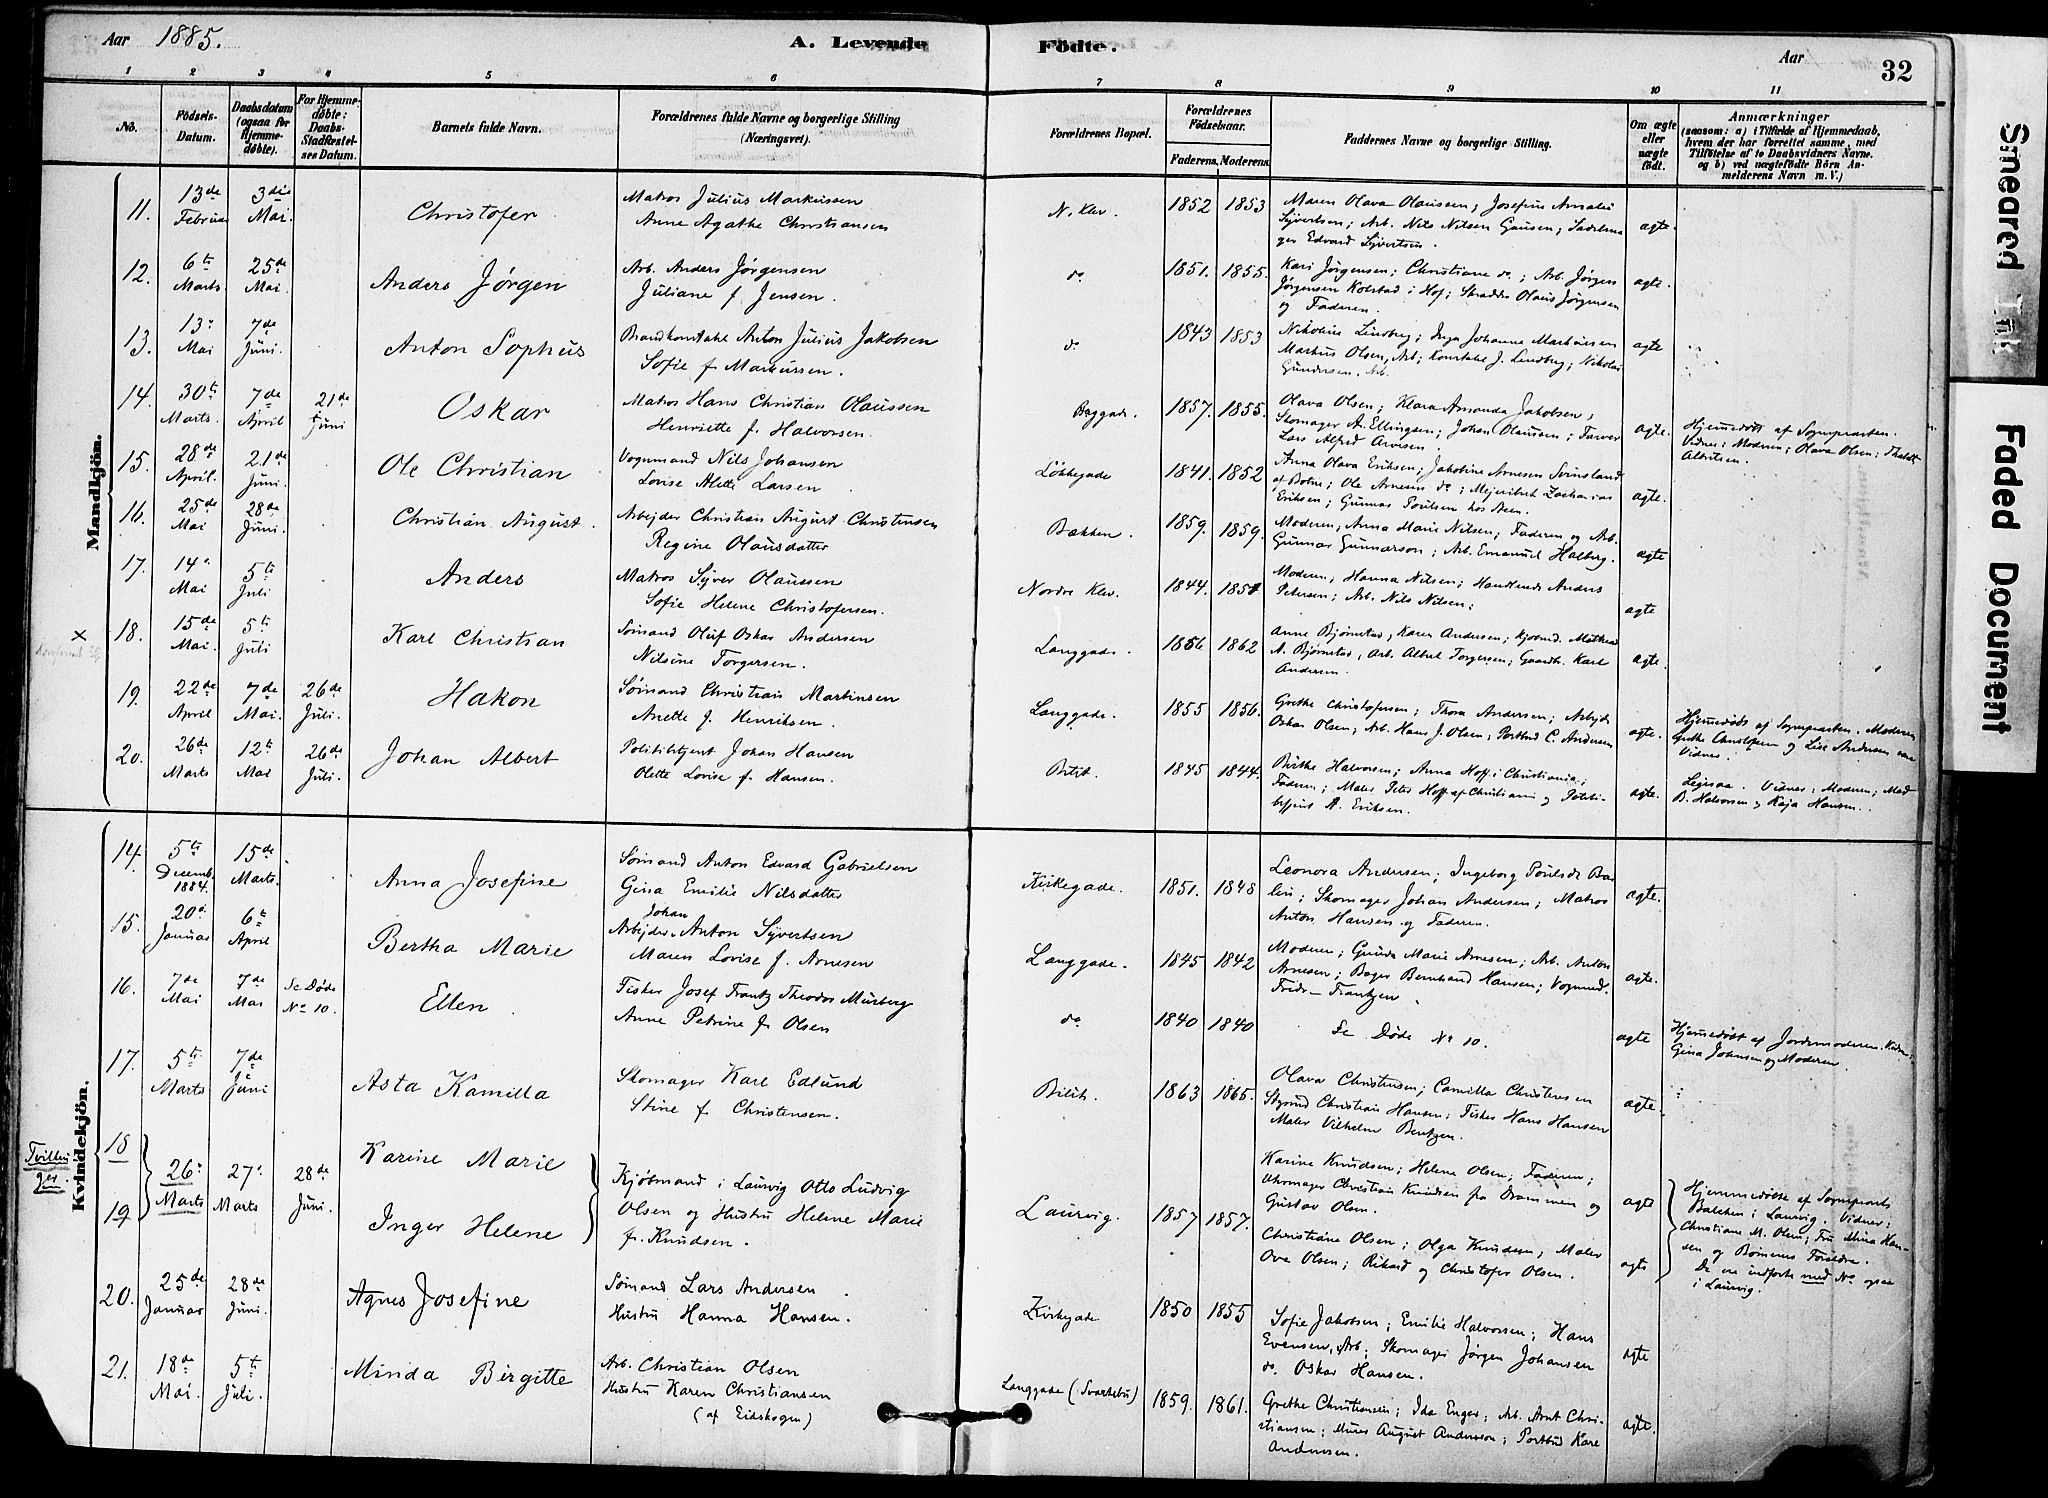 Aar 1885.
A. Levende Födte.
Aar
32
1 2 3 4 5 6 7 8 9 10 11
No.
Födsels-Datum.
Daabsdatum (ogsaa for Hjemme-döbte).
For Hjemme-döbte: Daabs-Stadfæstel-ses Datum.
Barnets fulde Navn.
Forældrenes fulde Navne og borgerlige Stilling (Næringsvei).
Forældrenes Bopæl.
Forældrenes Födselsaar.
Faderens. Moderens.
Faddernes Navne og borgerlige Stilling.
Om ægte eller uægte födt.
Anmærkninger
(saasom: a) i Tilfælde af Hjemmedaab,
hvem der har forrettet samme, med
Tilföielse af to Daabsvidners Navne.
og b) ved uægtefödte Börn An-
melderens Navn m. V.)
Mandkjön.
11. 13de Februar 3die Mai. Christofer
Matros Julius Markussen
Anne Agathe Christiansen
N. Klev. 1852 1853
Maren Olava Olaussen; Josefine Amalie
Syvertsen; Arb. Nils Nilsen Gausen; Sadelma
ger Edvard Syvertsen.
ægte.
12. 6te Marts. 25de Mai. Anders Jørgen
Arb. Anders Jørgensen
Juliane f. Jensen.
do 1851. 1855.
Kari Jørgensen; Christiane do.; Arb. Jørgen
Jørgensen Kolstad i Hof; Skrædder Olaus Jørgensen
og Faderen.
ægte.
13. 13de Mai 7de Juni. Anton Sophus
Brandkonstabel Anton Julius Jakobsen
Sofie f. Markussen.
do 1843 1853
Nikoline Lindberg; Inga Johanne Markussen
Markus Olsen, Arb; Konstabel J. Lindberg; Nikolai
Gundersen, Arb.
ægte
14. 30te Marts. 7de April 21de Juni Oskar
Matros Hans Christian Olaussen
Henriette f. Halvorsen.
Baggade. 1857. 1855.
Olava Olsen; Klara Amanda Jakobsen;
Skomager A. Ellingsen; Johan Olaussen; Farver
Lars Alfred Arvesen.
ægte.
Hjemmedøbt af Sognepræsten.
Vidner: Moderen, Olava Olsen;
Albertsen.
15. 28de April. 21de Juni. Ole Christian
Vognmand Nils Johansen
Lovise Alette Larsen
Løkkegade 1841. 1852
Anna Olava Eriksen; Jakobine Arnesen Svinsland
af Botne; Ole Arnesen do; Mejeribest. Zacharias
Eriksen; Gunnar Poulsen hos Steen.
ægte.
16. 25de Mai 28de Juni. Christian August.
Arbejder Christian August Christensen
Regine Olausdatter
Bækken. 1859. 1859.
Moderen, Anna Marie Nilsen; Faderen og Arb.
Gunnar Gunnarson; Arb. Emanuel Halberg.
ægte
17. 14de Mai 5te Juli Anders
Matros Syver Olaussen
Sofie Helene Christofersen.
Nordre Klev. 1844. 1851
Moderen; Hanna Nilsen; Handlende Anders
Petersen; Arb. Nils Nilsen;
ægte
X
18. 15de Mai. 5te Juli Karl Christian
Sømand Oluf Oskar Andersen
Nilsine Torgersen.
Langgade. 1856 1862
Anne Bjørnstad; Karen Andersen; Kjøbmd. Mathias
A. Bjørnstad, Arb. Albert Torgersen; Gaardb. Karl
Andersen.
ægte.
19. 22de April 7de Mai. 26de Juli. Hakon
Sømand Christian Martinsen
Anette f. Henriksen.
Langgade. 1855 1856.
Grethe Christofersen; Thora Andersen; Arbejder
Oskar Olsen; Arb. Hans J. Olsen; Postbud C. Andersen
ægte.
Hjemmedøbt af Sognepræsten. Moderen
Grethe Christofersen og Lise Andersen vare
Vidner.
20. 26de Marts 12te Mai 26de Juli. Johan Albert
Politibetjent Johan Hansen
Olette Lovise f. Hansen.
Bilit. 1845 1844.
Birthe Halvorsen; Anna Hoff i Christiania;
Faderen; Maler Peter Hoff af Christiania og Politi-
betjent A. Eriksen.
ægte.
Ligesaa. Vidner: Moderen; Mad
B. Halvorsen og Kaja Hansen.
Kvindekjön.
14. 5te Decemb. 1884. 15de Marts. Anna Josefine
Sømand Anton Edvard Gabrielsen
Gina Emilie Nilsdatter
Kirkegade. 1851. 1848
Leonora Andersen; Ingeborg Poulsdr Bar
lin; Skomager Johan Andersen; Matros
Anton Hansen og Faderen.
ægte.
15. 20de Januar 6te April Bertha Marie
Arbejder Johan Anton Syvertsen
Maren Lovise f. Arnesen
Langgade. 1845 1842
Moderen; Gunda Marie Arnesen; Arb. Anton
Arnesen; Bager Bernhard Hansen; Vognmd.
Fridr. Frantzen.
ægte.
16. 7de Mai 7de Mai Se Døde No 10. Ellen
Fisker Josef Frantz Theodor Mürberg
Anne Petrine f. Olsen
do 1840 1840
Se Døde No 10.
ægte
Hjemmedøbt af Jordmoderen.
Gina Johnsen og Moderen.
17. 5te Marts 7de Juni Asta Kamilla
Skomager Karl Edlund
Stine f. Christensen.
Bilit. 1863 1865.
Olava Christensen; Camilla Christensen
Styrmd Christian Hansen; Fisker Hans Hansen
Maler Vilhelm Bentzen.
ægte.
Tvillin
ger.
18 26de Marts 27de Marts 28de Juni. Karine Marie
19 Inger Helene
Kjøbmand i Laurvig Otto Ludvig
Olsen og Hustru Helene Marie
f. Knudsen.
Laurvig. 1857 1857.
Karine Knudsen; Helene Olsen; Faderen;
Uhrmager Christian Knudsen fra Drammen og
Gustav Olsen.
ægte
Christiane Olsen; Olga Knudsen; Maler
Ove Olsen; Rikard og Christofer Olsen.
ægte
Hjemmedøbte af Sognepræst
Balchen i Laurvig. Vidner:
Christiane M. Olsen; Fru Mina Han-
sen og Børnenes Forældre.
De ere indførte med No ogsaa
i Laurvig.
20. 25de Januar 28de Juni. Agnes Josefine
Sømand Lars Andersen
Hustru Hanna Hansen.
Kirkegade 1850 1855
Sofie Jakobsen; Emilie Halvorsen; Hans
Evensen, Arb; Skomager Jørgen Johansen
do. Oskar Hansen.
ægte
21. 18de Mai. 5te Juli. Minda Birgitte
Arb. Christian Olsen
Hustru Karen Christiansen
(af Eidskogen)
Langgade (Svartebu) 1859. 1861.
Grethe Christiansen; Ida Enger; Arb. Arnt Chri-
stiansen; Murer August Andersson; Postbud Karl
Andersen.
ægte.
Smeared Ink
Faded Document